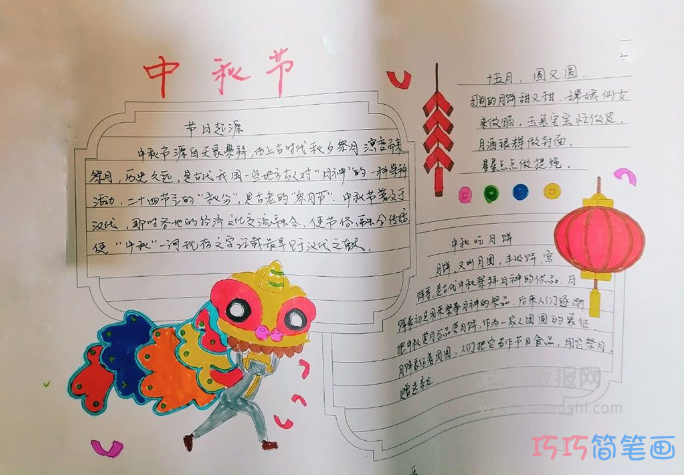 中秋节
节日起源
中秋节源自天象崇拜,由上古时代秋夕祭月演变而来
祭月,历史久远,是古代我国一些地方古人对"月神"的一种崇拜
活动,二十四节气的"秋分",是古老的"祭月节"。中秋节普及于
汉代,那时各地的经济文化交流融合,使节俗
使"中秋"一词现存文字记载最早见于汉代文献。
十五月,圆又圆
的月饼甜又甜.嫦娥仙女
来做馅,玉兔宝宝
月洒银辉做封面,
星星点点做
中秋吃月饼
月饼,又叫月团、丰收饼、宫
饼等,是古代中秋祭拜月神的供品.月
饼最初是用来祭奉月神的祭品,后来人们逐渐
把中秋赏月与品尝月饼,作为家人团圆的象征
月饼象征着团圆,人们把它当作节日食品,用它祭月,
赠送亲友
巧巧简笔画